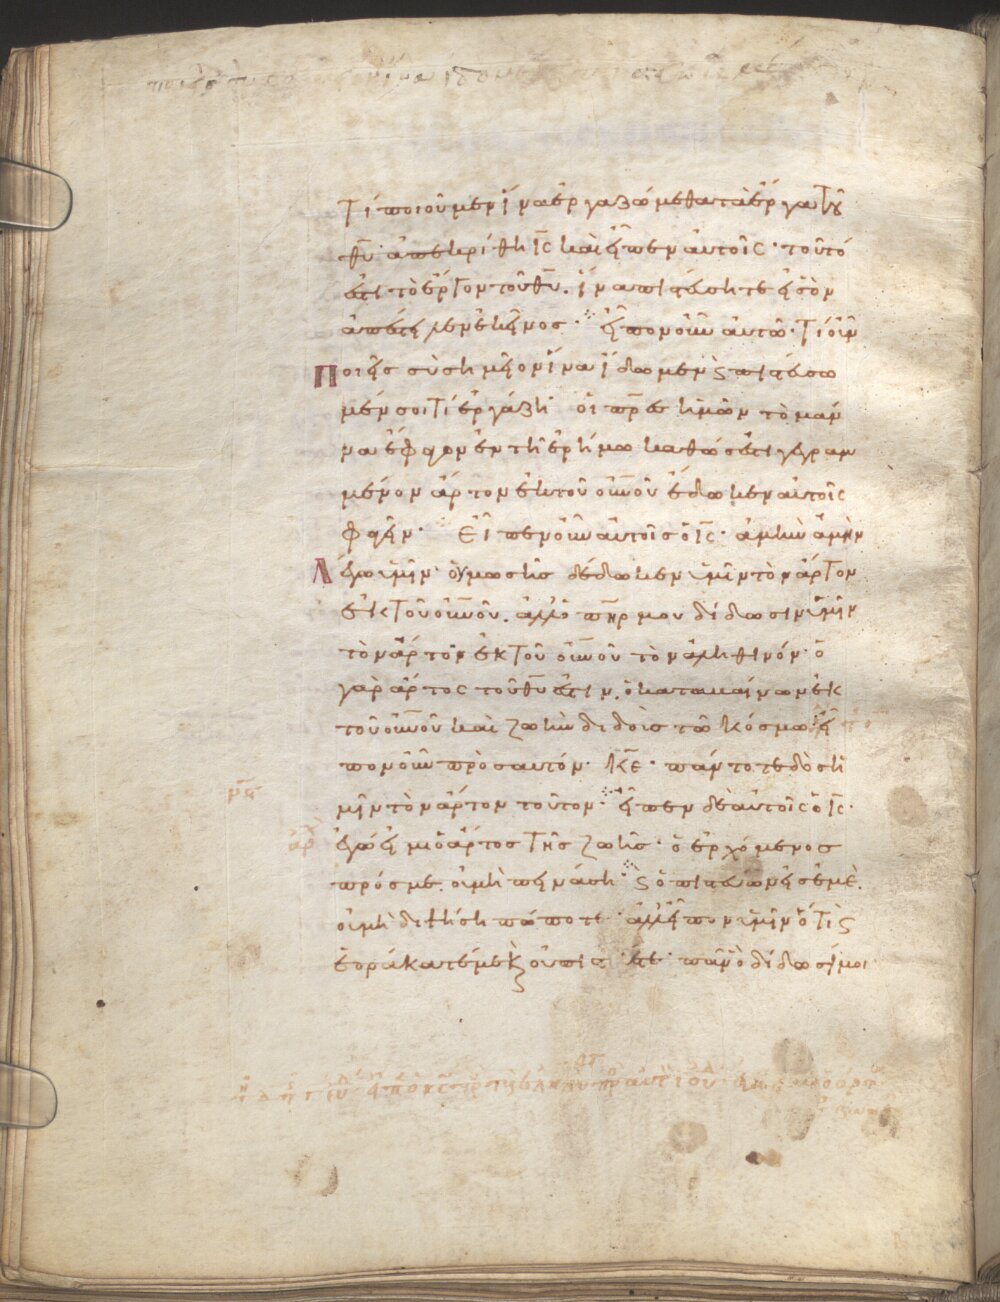 Τί ποιοῦμεν ἵνα ἐργαζώμεθα τὰ ἔργα τοῦ
θυ· ἀπεκρίθη ις καὶ εἶπεν αὐτοῖς· τοῦτό
ἐστι τὸ ἔργον τοῦ θυ. ἵνα πιστεύσητε εἰς ὃν
ἀπέστειλεν ἐκεῖνος· εἶπον οὖν αὐτῶ· τί οὖν
ποιεῖς σὺ σημεῖον ἵνα ἴδωμεν ϗ πιστεύσω
μέν σοι τί ἐργάζη οἱ πρες ἡμῶν τὸ μάν
να ἔφαγον ἐν τῆ ἐρήμω καθώς ἐστι γεγραμ
μένον ἄρτον ἐκ τοῦ οὐνοῦ ἔδωκεν αὐτοῖς
φαγεῖν· εἶπεν οὖν αὐτοῖς ὁ ις· ἀμὴν ἀμὴν
λέγω ὑμῖν· οὐ μωσῆς δέδωκεν ὑμῖν τὸν ἄρτον
ἐκ τοῦ οὐνοῦ. ἀλλ' ὁ πηρ μου δίδωσιν ὑμῖν
τὸν ἄρτον ἐκ τοῦ οὐνοῦ τὸν ἀληθινόν· ὁ
γὰρ ἄρτος τοῦ θυ ἐστιν. ὁ καταβαίνων ἐκ
τοῦ οὐνοῦ καὶ ζωὴν διδοὺς τῶ κόσμω· εἶ
πον οὖν πρὸς αὐτόν· κε· πάντοτε δὸς ἡ
μῖν τὸν ἄρτον τοῦτον· εἶπεν δὲ αὐτοῖς ὁ ις·
ἐγώ εἰμι ὁ ἄρτος τῆς ζωῆς· ὁ ἐρχόμενος
πρός με. οὐ μὴ πεινάση· ϗ ὁ πιστεύων εἰς ἐμὲ.
οὐ μὴ διψήση πώποτε· ἀλλ' εἶπον ὑμῖν ὅτι ϗ
ἑοράκατέ με ϗ οὐ πιστεύετε· πᾶν ὃ δίδωσί μοι